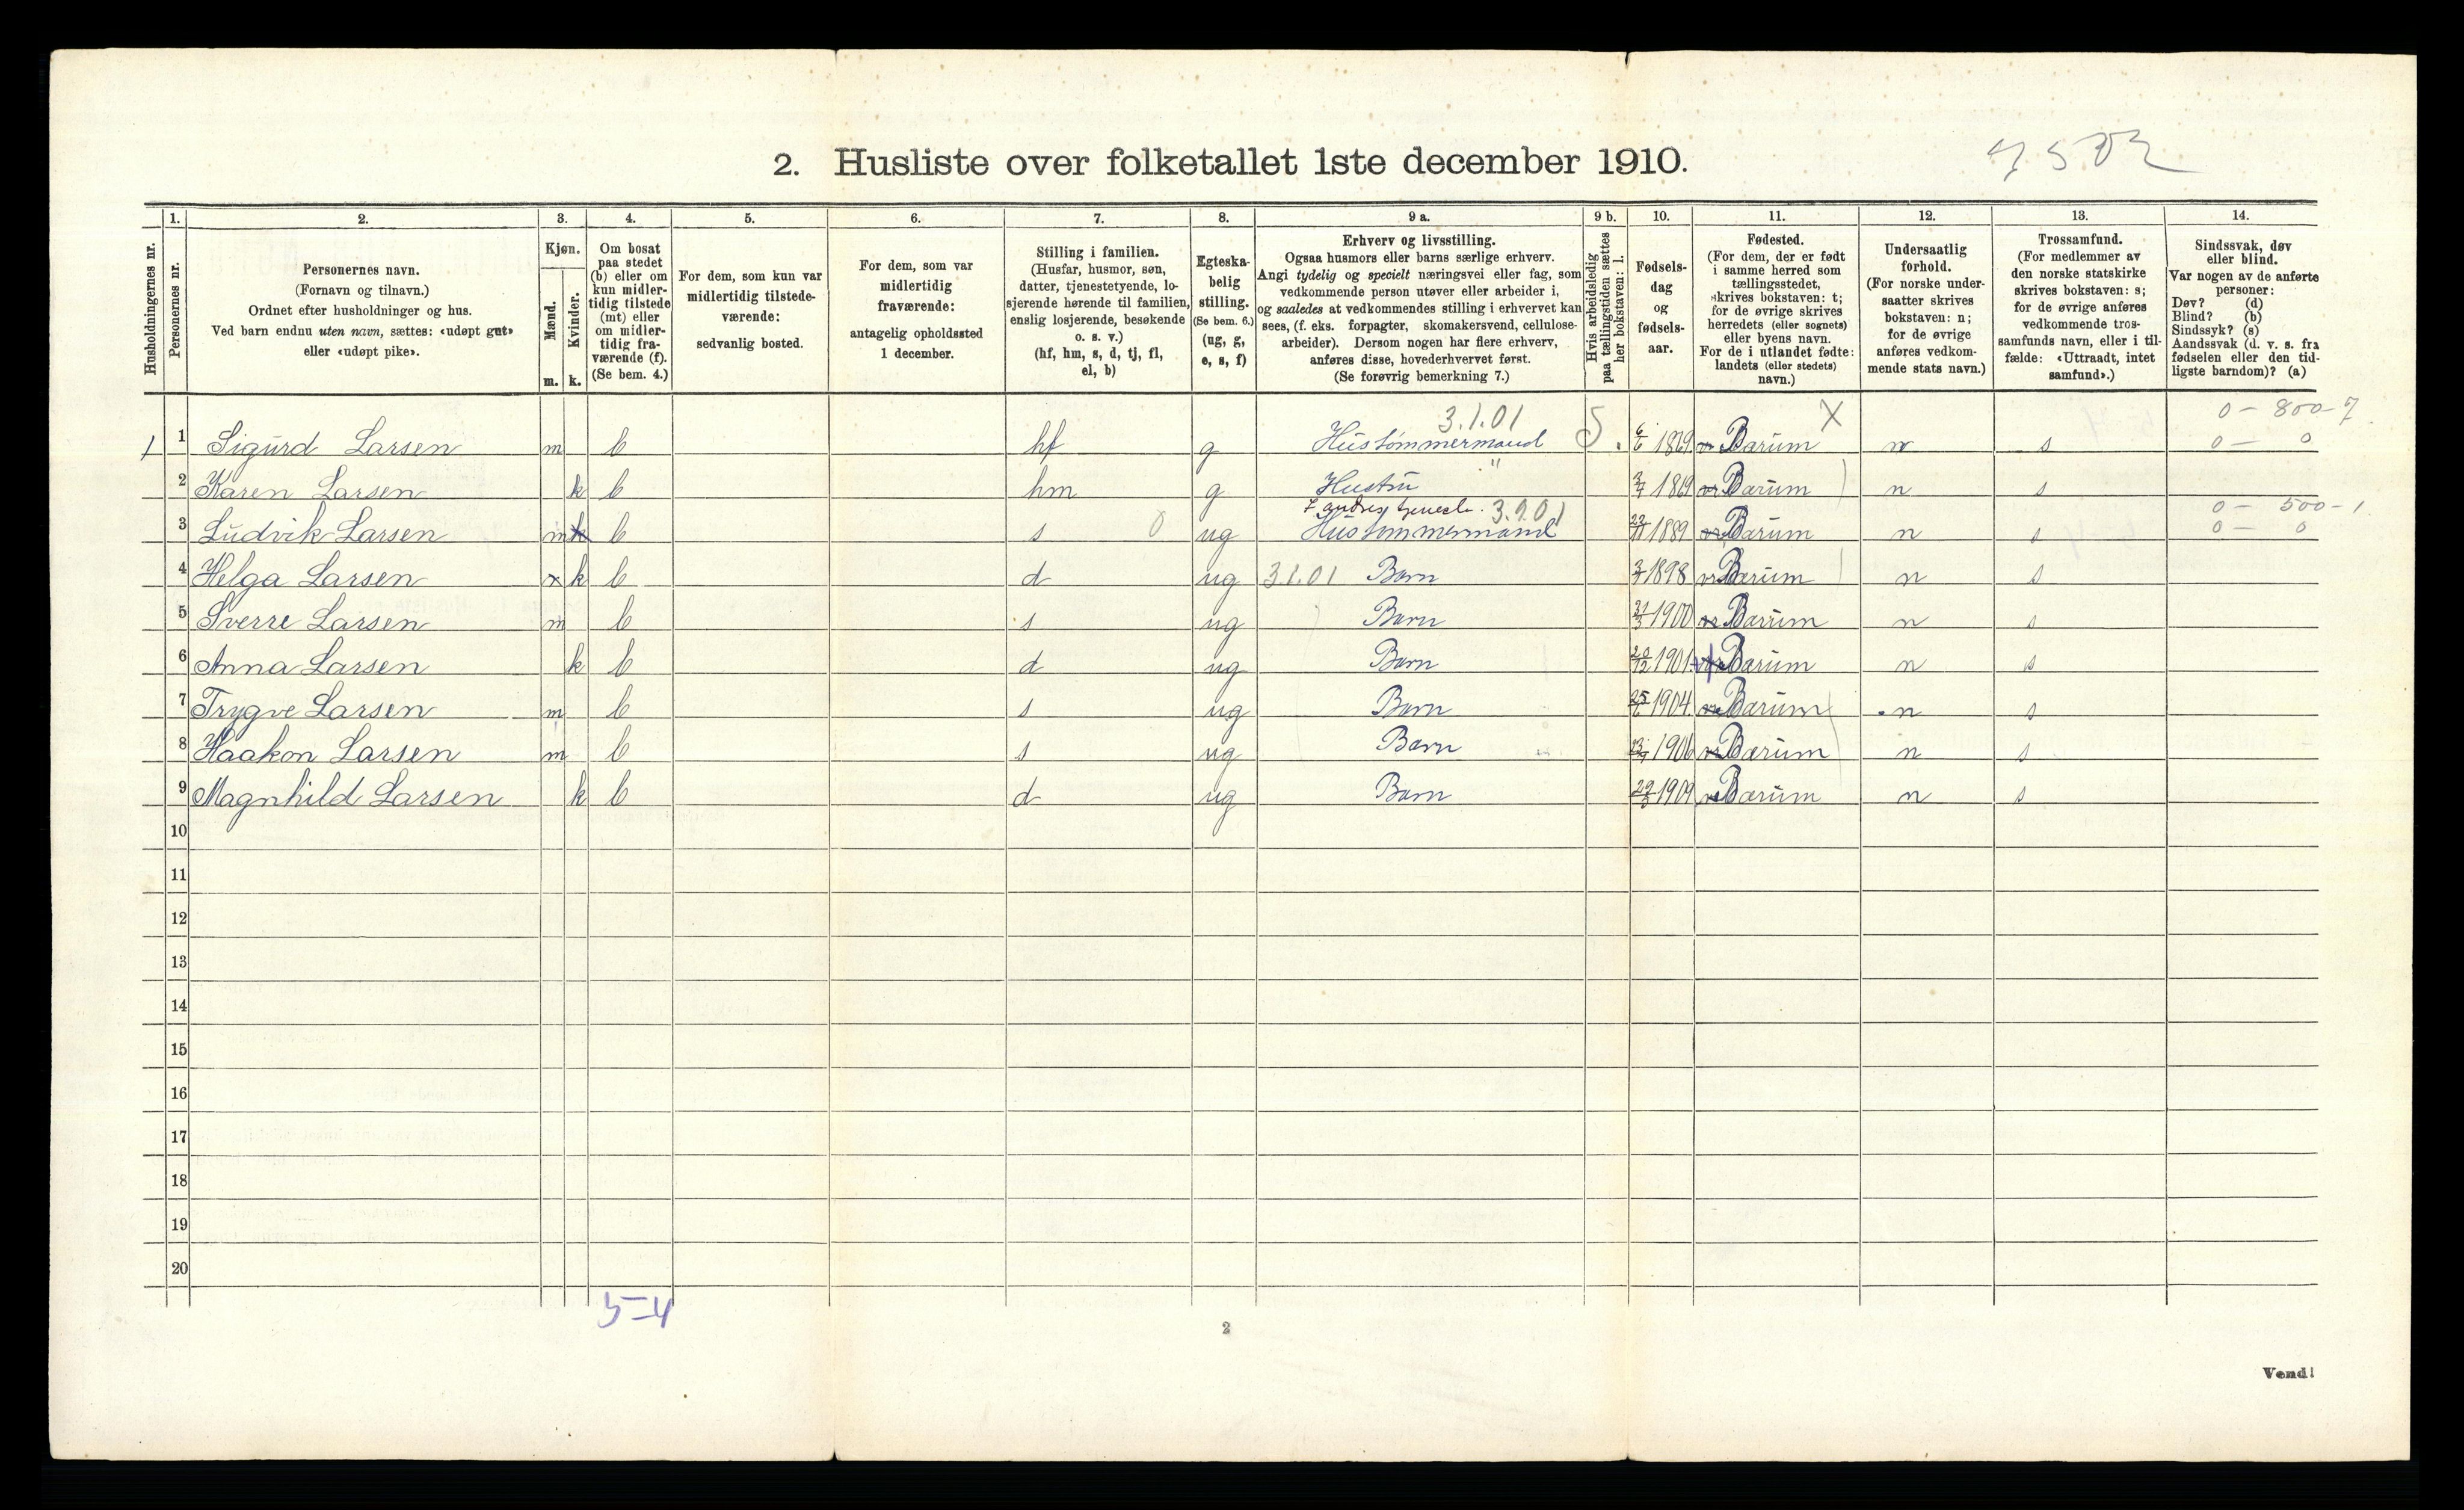 2. Husliste over folketallet 1ste december 1910.
Husholdningernes nr.
1. Personernes nr.
2. Personernes navn.
(Fornavn og tilnavn.)
Ordnet efter husholdninger og hus.
Ved barn endnu uten navn, sættes: «udøpt gut»
eller «udøpt pike».
3. Kjøn.
Mænd. m.
Kvinder. k.
4. Om bosat
paa stedet
(b) eller om
kun midler-
tidig tilstede
(mt) eller
om midler-
tidig fra-
værende (f).
(Se bem. 4.)
5. For dem, som kun var
midlertidig tilstede-
værende:
sedvanlig bosted.
6. For dem, som var
midlertidig
fraværende:
antagelig opholdssted
1 december.
7. Stilling i familien.
(Husfar, husmor, søn,
datter, tjenestetyende, lo-
sjerende hørende til familien,
enslig losjerende, besøkende
o. s. v.)
(hf, hm, s, d, tj, fl,
el, b)
8. Egteska-
belig
stilling.
(Se bem. 6.)
(ug, g,
e, s, f)
9 a. Erhverv og livsstilling.
Ogsaa husmors eller barns særlige erhverv.
Angi tydelig og specielt næringsvei eller fag, som
vedkommende person utøver eller arbeider i,
og saaledes at vedkommendes stilling i erhvervet kan
sees, (f. eks. forpagter, skomakersvend, cellulose-
arbeider). Dersom nogen har flere erhverv,
anføres disse, hovederhvervet først.
(Se forøvrig bemerkning 7.)
9 b. Hvis arbeidsledig
paa tællingstiden sættes
her bokstaven: l.
10. Fødsels-
dag
og
fødsels-
aar.
11. Fødested.
(For dem, der er født
i samme herred som
tællingsstedet,
skrives bokstaven: t;
for de øvrige skrives
herredets (eller sognets)
eller byens navn.
For de i utlandet fødte:
landets (eller stedets)
navn.)
12. Undersaatlig
forhold.
(For norske under-
saatter skrives
bokstaven: n;
for de øvrige
anføres vedkom-
mende stats navn.)
13. Trossamfund.
(For medlemmer av
den norske statskirke
skrives bokstaven: s;
for de øvrige anføres
vedkommende tros-
samfunds navn, eller i til-
fælde: «Uttraadt, intet
samfund».)
14. Sindssvak, døv
eller blind.
Var nogen av de anførte
personer:
Døv? (d)
Blind? (b)
Sindssyk? (s)
Aandssvak (d. v. s. fra
fødselen eller den tid-
ligste barndom)? (a)
3.1.01 X 0 - 800 - 7
1 Sigurd Larsen m b hf g Hustømmermand 5 6/6 1869 Bærum n s 0 - 0
2 Karen Larsen k b hm g Hustru 1869 Bærum n s
3.1.01 0 - 500 - 1
3 Ludvik Larsen m b s 0 ug Hustømmermand 1889 Bærum n s 0 - 0
4 Helga Larsen k b d ug 3.1.01 Barn 1898 Bærum n s
5 Sverre Larsen m b s ug Barn 1900 Bærum n s
6 Anna Larsen k b d ug Barn 20/12 1901 Bærum n s
7 Trygve Larsen m b s ug Barn 1904 Bærum n s
8 Haakon Larsen m b s ug Barn 1906 Bærum n s
9 Magnhild Larsen k b d ug Barn 1909 Bærum n s
10
11
12
13
14
15
16
17
18
19
20
5=4
2
Vend!